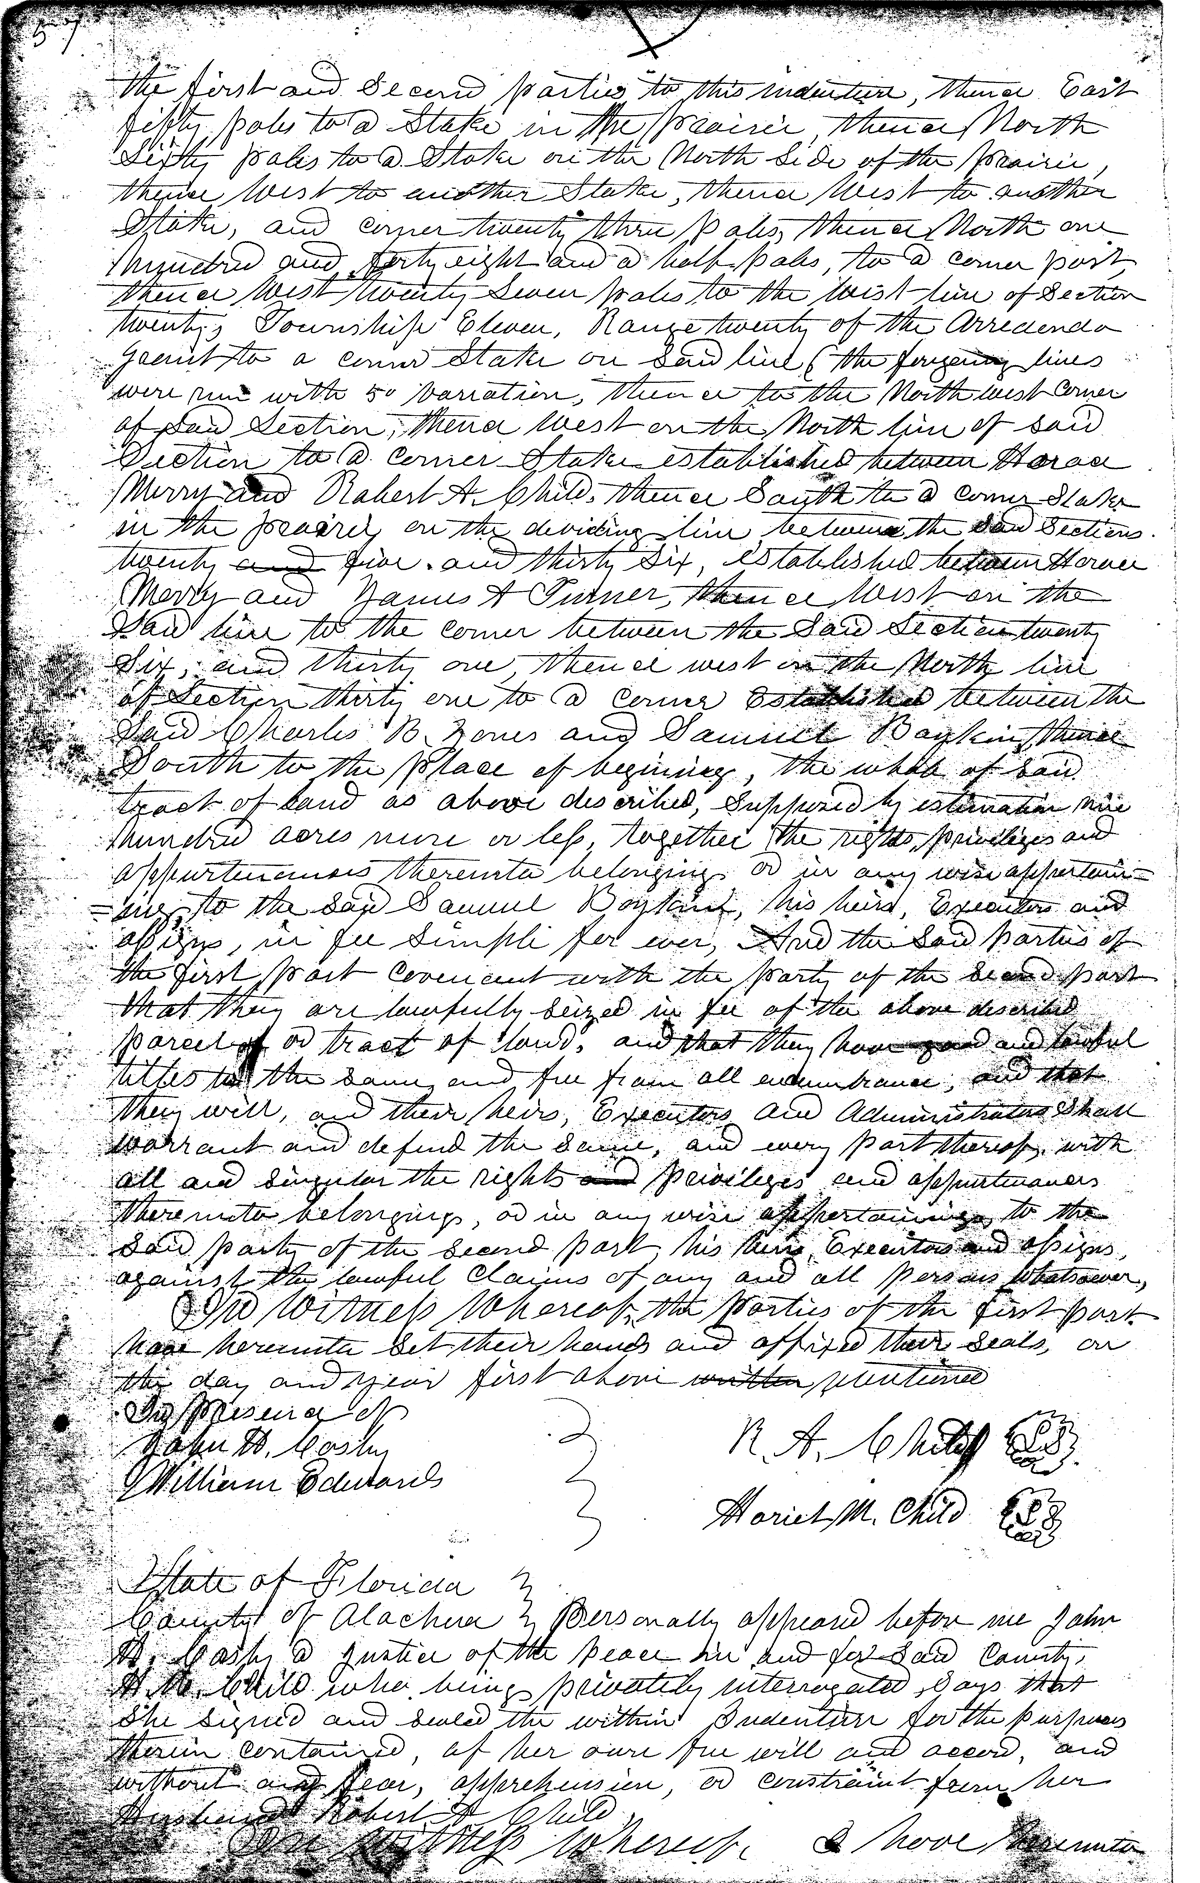 57
the first and Second parties to this indenture, thence East
fifty poles to a Stake in the prairie, thence North
Sixty poles to a Stake on the North Side of the prairie,
thence West to another Stake, thence West to another
Stake, and corner twenty three poles, thence North one
hundred and forty eight and a half poles, to a corner post,
thence West twenty Seven poles to the West line of Section
twenty, Township Eleven, Range twenty of the Arredondo
grant to a corner Stake on Said line (the forgoing lines
were run with 5° variation, thence to the North west Corner
of Said Section, thence West on the North line of said
Section to a corner Stake established between Horace
Merry and Robert A. Child, thence South to a corner Stake
in the prairie on the dividing line between the Said Sections
twenty and five and thirty Six, established between Horace
Merry and James A Turner, thence West on the
Said line to the corner between the Said Section twenty
Six, and thirty one, thence west on the North line
of Section thirty one to a corner Established between the
Said Charles B. Jones and Samuel Boykin, thence
South to the place of begining, the whole of said
tract of land as above described, Supposed by estimation nine
hundred acres more or less, together the rights, privileges and
appurtenances thereunto belonging or in any wise appertain=
=ing, to the Said Samuel Boykin, his heirs, Executors and
assigns, in fee Simple for ever, And the Said parties of
the first part covenant with the party of the second part
that they are lawfully seized in fee of the above described
parcel of or tract of land, and that they have good and lawful
titles to the same, and free from all encumbrance, and that
they will, and their heirs, Executors and Administrators Shall
warrant and defend the same, and every part thereof, with
all and singular the rights and privileges and appurtenances
thereunto belonging, or in any wise appertaining, to the
Said party of the Second part, his heirs, Executors and assigns,
against the lawful Claims of any and all persons whatsoever,
In Witness Whereof, the parties of the first part
have hereunto Set their hands and affixed their seals, on
the day and year first above written mentioned
In presence of
John H. Cosby
William Edwards
R. A. Child
Hariet M. Child
State of Florida
County of Alachua Personally appeared before me John
H. Cosby a Justice of the Peace in and for Said County,
H. M. Child who being privately interrogated, Says that
She signed and sealed the within Indenture for the purposes
therein contained, of her own free will and accord, and
without any fear, apprehension, or constraint from her
Husband Robert A Child
In witness Whereof, I have hereunto